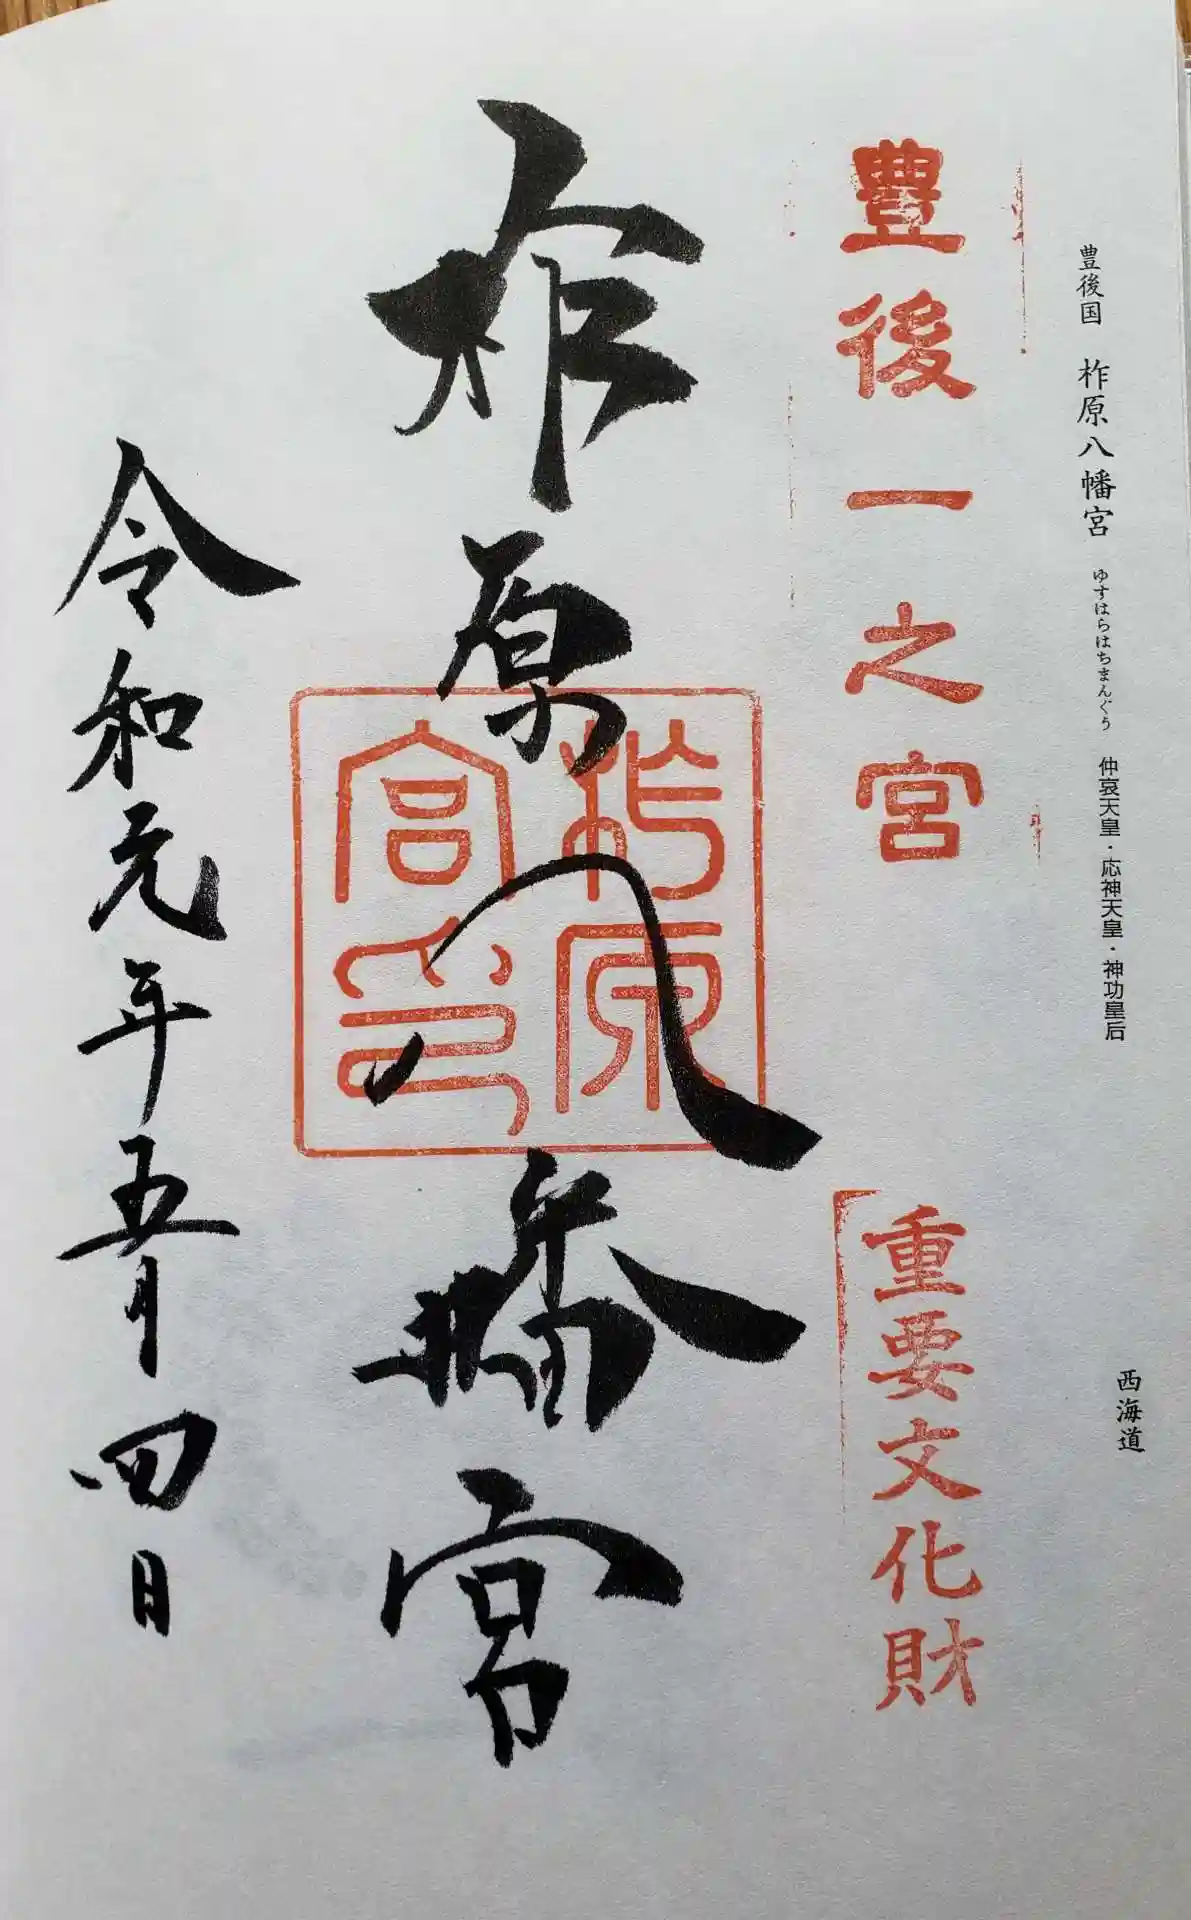 豊後国 柞原八幡宮 ゆすはらはちまんぐう 仲哀天皇・応神天皇・神功皇后 西海道
豊後一之宮
重要文化財
柞原八幡宮
柞原宮印
令和元年五月四日